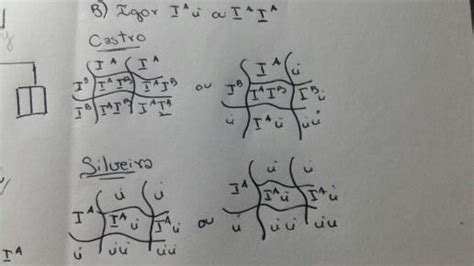 B) Igor Iᴬi ou IᴬIᴬ
Castro
Iᴬ Iᴬ
Iᴮ IᴬIᴮ IᴬIᴮ
Iᴮ IᴬIᴮ IᴬIᴮ
ou
Iᴬ i
Iᴮ IᴬIᴮ Iᴮi
i Iᴬi ii
Silveira
i i
Iᴬ Iᴬi Iᴬi
i ii ii
ou
i i
Iᴬ Iᴬi Iᴬi
i ii ii
Iᴬ